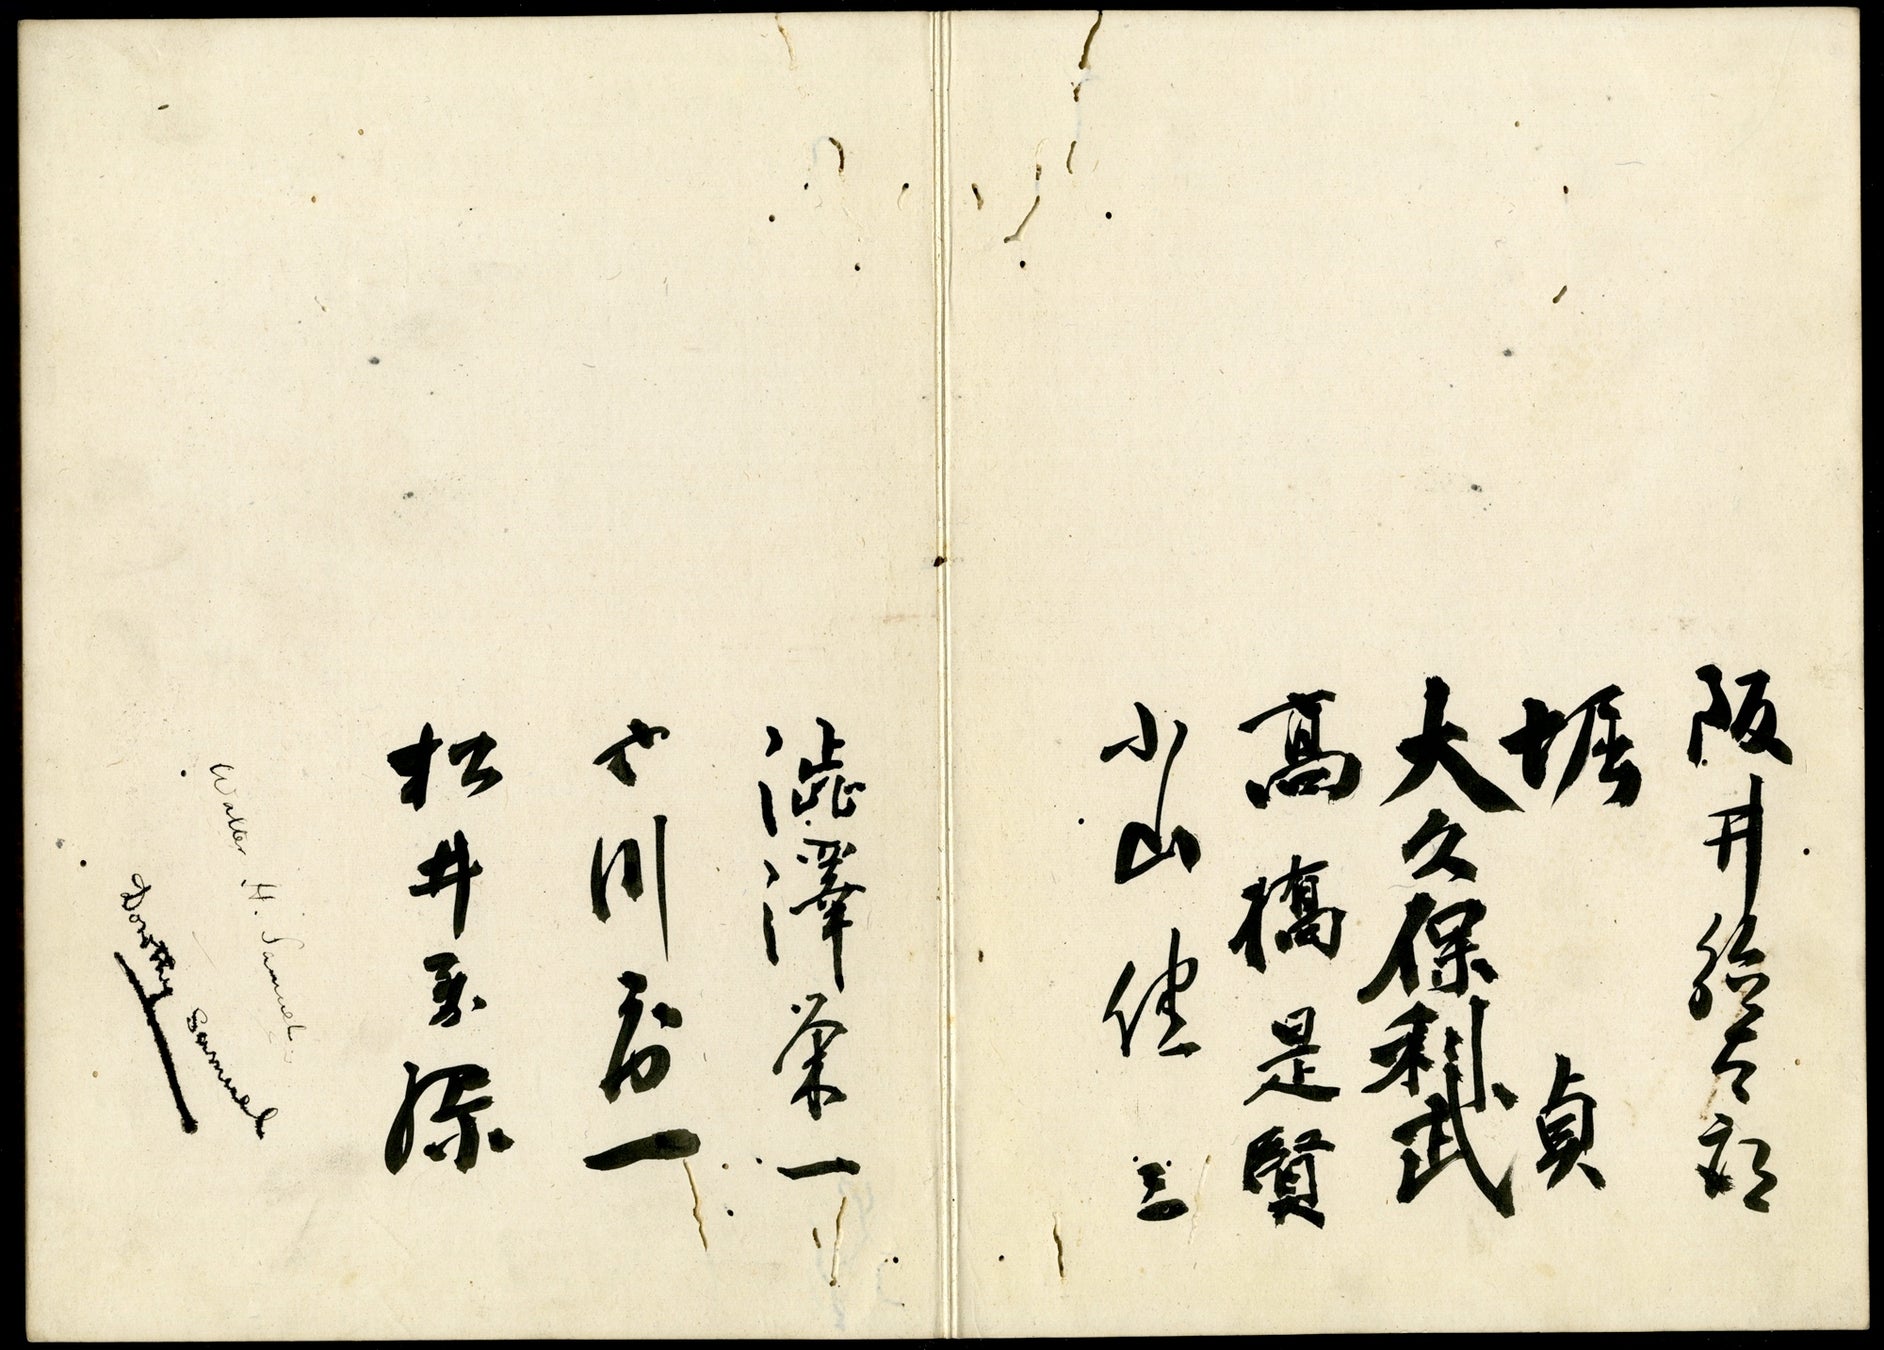 阪井徳太郎
堀 貞
大久保利武
高橋是賢
小山健三
澁澤榮一
古川 一
松井慶四郎
Walter H. Samuel
Dorothy Samuel